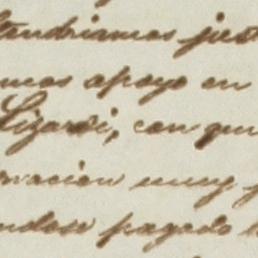 tendriamos just
mos apoyo en
Lizardi, con qui
rvacion muy
ndose pagado